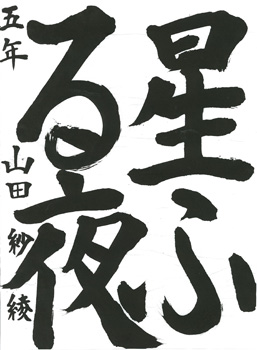 星ふ
る夜
五年 山田紗綾